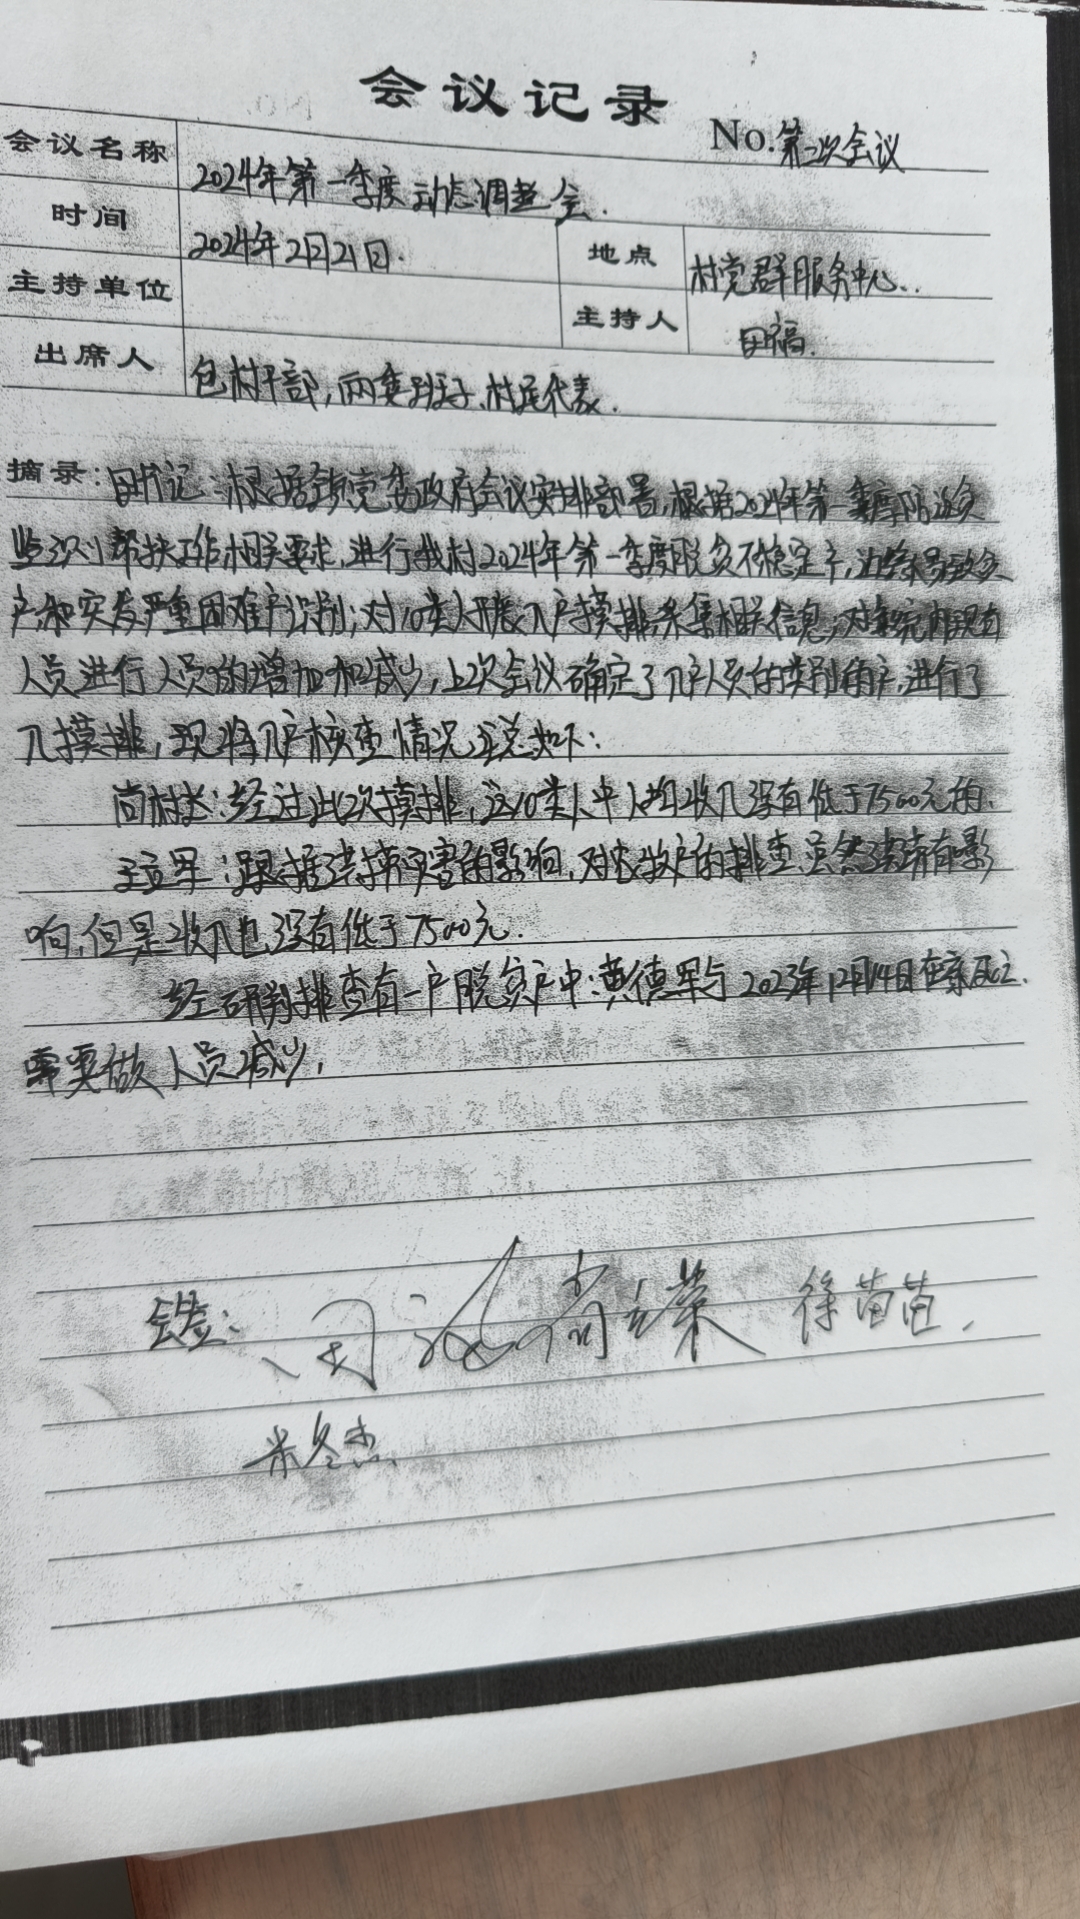 会议记录
No.第二次会议
会议名称 2024年第一季度动态调整会.
时间 2024年2月21日. 地点 村党群服务中心..
主持单位 主持人 田福.
出席人 包村干部,两委班子,村民代表.
摘录:田书记:根据镇党委政府会议安排部署,根据2024年第一季度防返贫
监测帮扶工作相关要求,进行我村2024年第一季度脱贫不稳定户,边缘易致贫
户和突发严重困难户识别;对10类人开展入户摸排,采集相关信息;对系统内现有
人员进行人员的增加和减少,上次会议确定了入户人员的类别角户,进行了
入摸排,现将入户核查情况汇总如下:
尚村长:经过此次摸排,这10类人中人均收入没有低于7500元的.
王立军:跟据洪涝灾害的影响,对农牧户的排查虽然洪涝有影
响,但是收入也没有低于7500元.
经研判排查有一户脱贫户中:黄德军与2023年12月14日在家死亡.
需要做人员减少,
会签: 尚玉荣 徐苗苗,
米冬杰